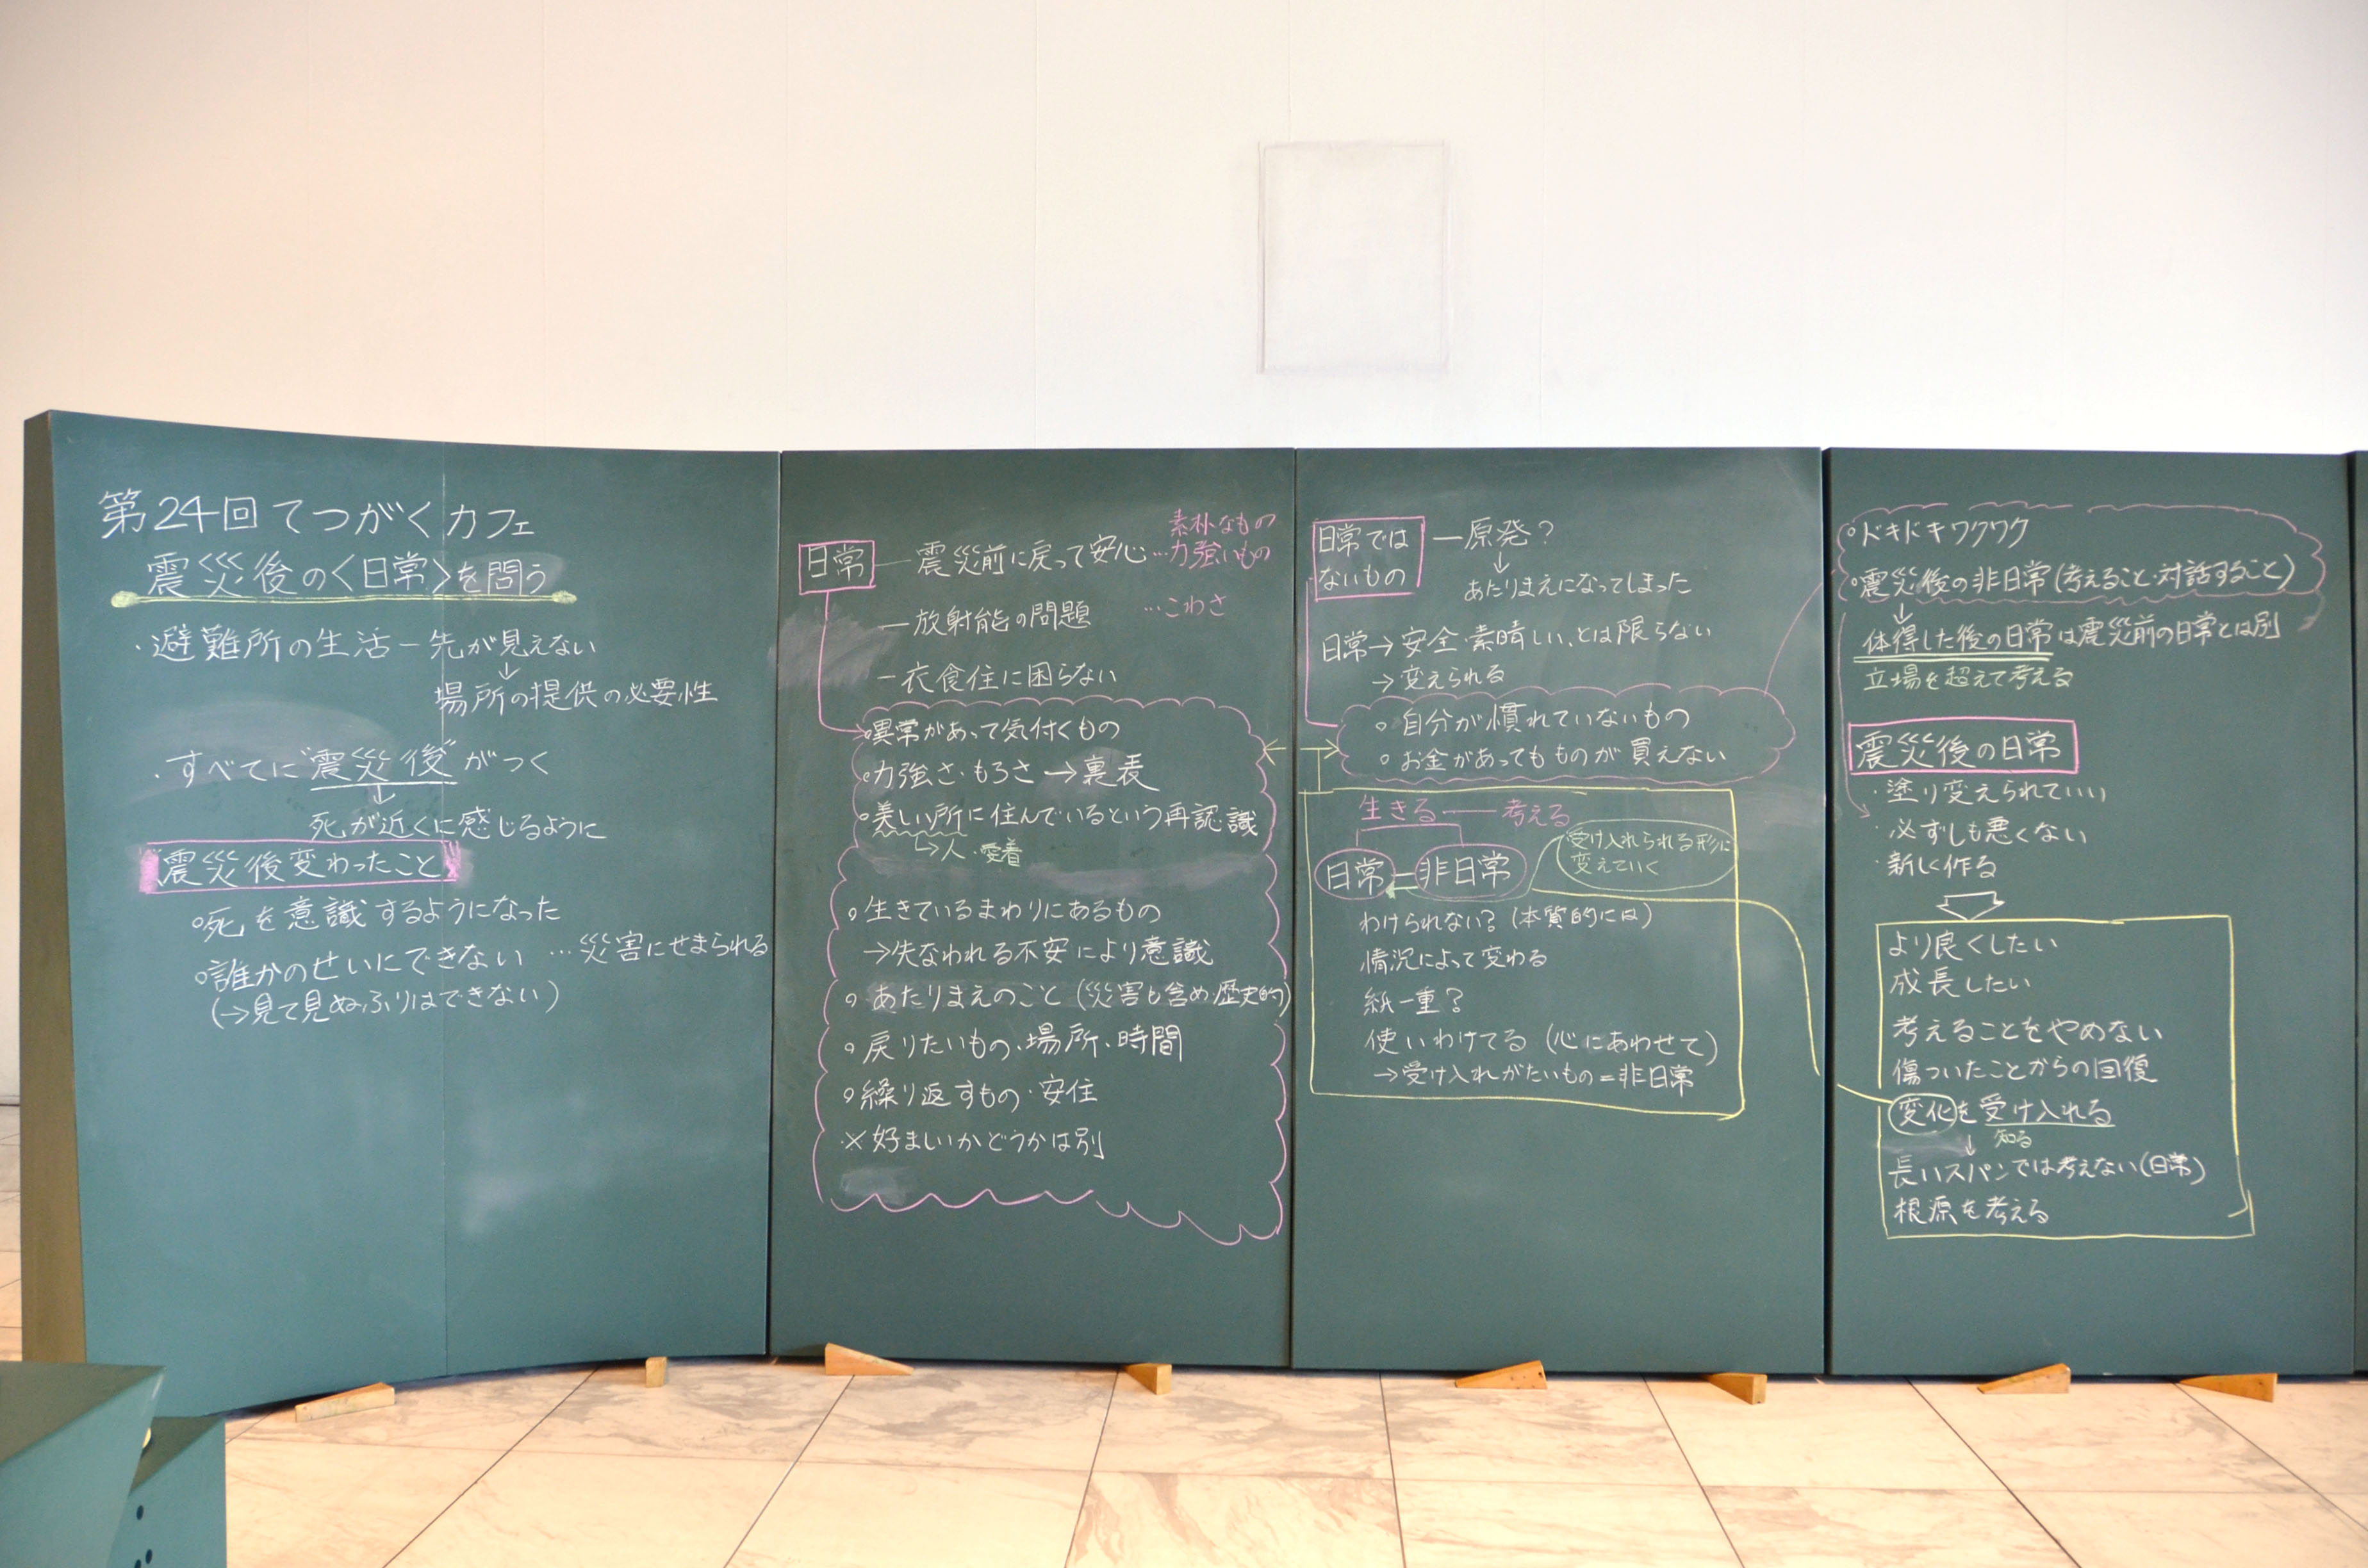 第24回てつがくカフェ
震災後の〈日常〉を問う
・避難所の生活－先が見えない
↓
場所の提供の必要性
・すべてに"震災後"がつく
↓
死が近くに感じるように
震災後変わったこと
○死を意識するようになった
○誰かのせいにできない …災害にせまられる
(→見て見ぬふりはできない)
日常 ―震災前に戻って安心 …力強いもの
素朴なもの
―放射能の問題 …こわさ
―衣食住に困らない
○異常があって気付くもの
○力強さ・もろさ→裏表
○美しい所に住んでいるという再認識
→人・愛着
○生きているまわりにあるもの
→失なわれる不安により意識
○あたりまえのこと(災害も含め歴史的)
○戻りたいもの、場所、時間
○繰り返すもの・安住
※好まいかどうかは別
日常では
ないもの
―原発？
↓
あたりまえになってしまった
日常→安全・素晴しい、とは限らない
→変えられる
○自分が慣れていないもの
○お金があってもものが買えない
生きる―考える
日常―非日常
受け入れられる形に
変えていく
わけられない？(本質的には)
情況によって変わる
紙一重？
使いわけてる(心にあわせて)
→受け入れがたいもの＝非日常
○ドキドキワクワク
○震災後の非日常(考えること・対話すること)
↓
体得した後の日常は震災前の日常とは別
立場を超えて考える
震災後の日常
・塗り変えられていい
・必ずしも悪くない
・新しく作る
より良くしたい
成長したい
考えることをやめない
傷ついたことからの回復
変化を受け入れる
↓ 知る
長いスパンでは考えない(日常)
根源を考える